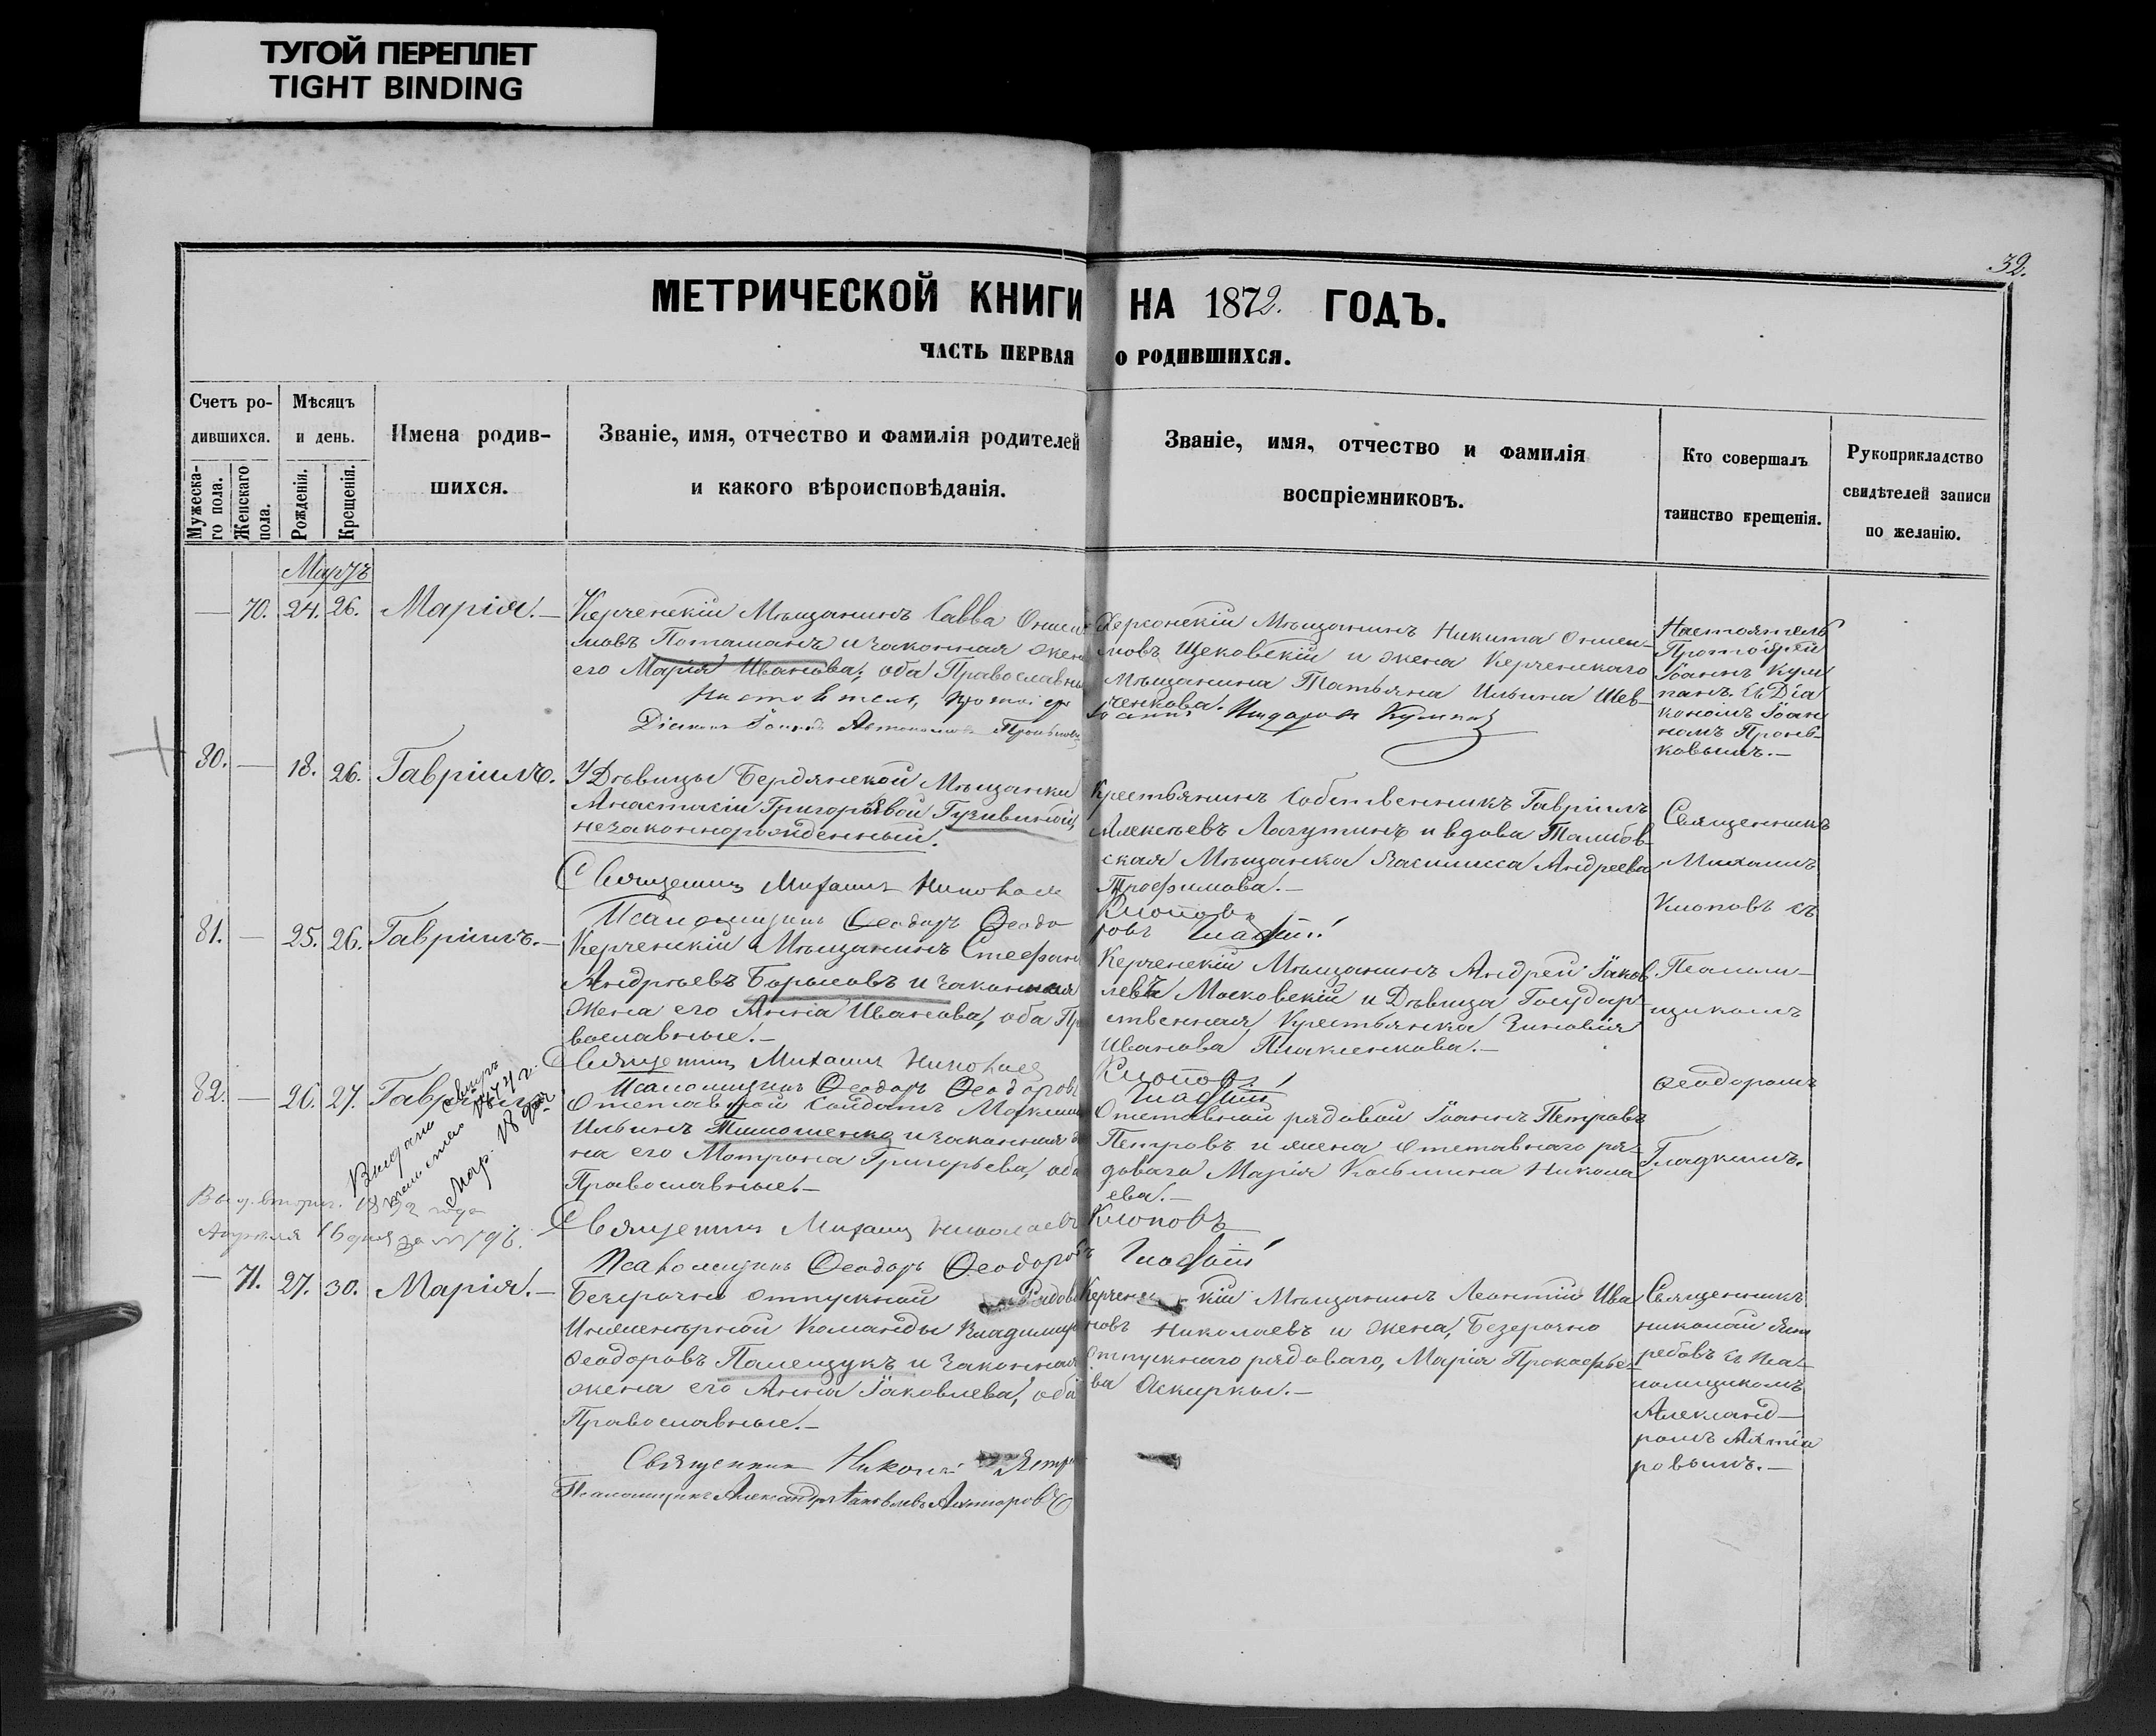 ТУГОЙ ПЕРЕПЛЕТ
TIGHT BINDING
32.
МЕТРИЧЕСКОЙ КНИГИ НА 1872. ГОДЪ.
ЧАСТЬ ПЕРВАЯ о РОДИВШИХСЯ.
Счетъ ро-
дившихся.
Мужеска-
го пола.
Женскаго
пола.
Мѣсяцъ
и день.
Рожденія.
Крещенія.
Имена родив-
шихся.
Званіе, имя, отчество и фамилія родителей
и какого вѣроисповѣданія.
Званіе, имя, отчество и фамилія
воспріемниковъ.
Кто совершалъ
таинство крещенія.
Рукоприкладство
свидѣтелей записи
по желанію.
Мартъ
— 70. 24. 26. Марія.—
Керченскій Мѣщанинъ Савва
мовъ и законная жена
его Марія Иванова, оба Православные
Діаконъ Іоаннъ
Херсонскій Мѣщанинъ Никита Ониси-
мовъ Щековскій и жена Керченскаго
Мѣщанина Татьяна Ильина Шев-
ченкова.
Настоятель
Протоіерей
Іоаннъ Кум
панъ съ Діа
кономъ Іоан
номъ
ковымъ.—
80. — 18. 26. Гавріилъ.
У Дѣвицы Бердянской Мѣщанки
Анастасіи Григорьевой
незаконнорожденный.
Священникъ Михаилъ Николаев
Псаломщикъ Ѳеодоръ Ѳеодо
Крестьянинъ Собственникъ Гавріилъ
Алексѣевъ Лагутинъ и вдова Тамбов-
ская Мѣщанка Василиса Андреева
Трофимова.—
Клоповъ
ровъ Гладкій
Священникъ
Михаилъ
Клоповъ съ
Псалом-
щикомъ
Ѳеодоромъ
Гладкимъ.
81. — 25. 26. Гавріилъ.—
Керченскій Мѣщанинъ Стефанъ
Андреевъ Борисовъ и законная
жена его Анна Иванова, оба Пра
вославные.—
Священникъ Михаилъ Николаев
Псаломщикъ Ѳеодоръ Ѳеодоровъ
Керченскій Мѣщанинъ Андрей Іаков
левъ Московскій и Дѣвица Государ-
ственная Крестьянка Зиновія
Иванова Плаксенкова.—
Клоповъ
Гладкій
82. — 26. 27. Гавріилъ.
Выдано
1874 г.
Мар. 18 дня
года
Апрѣля 16 дня за № 196.
Отставной Солдатъ
Ильинъ Тимошенко и законная же
на его Матрона Григорьева, оба
Православные.—
Священникъ Михаилъ Николаевъ Клоповъ
Псаломщикъ Ѳеодоръ Ѳеодоровъ Гладкій
Отставной рядовой Іоаннъ Петровъ
Петровъ и жена отставнаго ря-
доваго Марія Косьмина Никола
ева.—
— 71. 27. 30. Марія.—
Безсрочно отпускной Рядовой
Инженерной Команды Владиміръ
Ѳеодоровъ Палещукъ и законная
жена его Анна Іаковлева, оба
Православные.—
Священникъ Николай Ястр
Псаломщикъ Александръ Іаковлевъ
Керченскій Мѣщанинъ Леонтій Ива
новъ Николаевъ и жена, Безсрочно
отпускнаго рядоваго, Марія Прокофье-
ва
Священникъ
Николай Яст
ребовъ съ Пса-
ломщикомъ
Александ-
ромъ
ровымъ.—